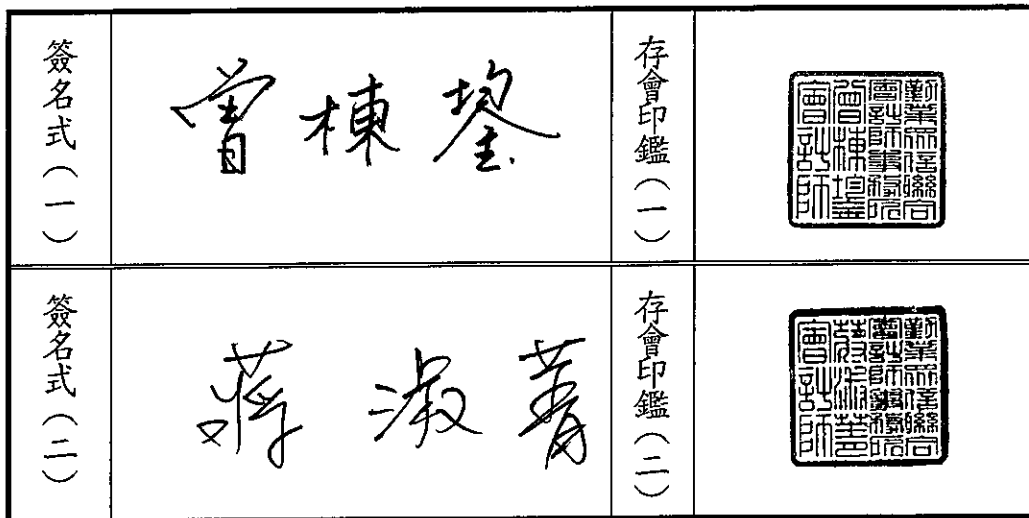 簽名式（一）
曾棟鋆
存會印鑑（一）
勤業眾信聯合
會計師事務所
曾棟鋆
會計師
簽名式（二）
蔣淑菁
存會印鑑（二）
勤業眾信聯合
會計師事務所
蔣淑菁
會計師